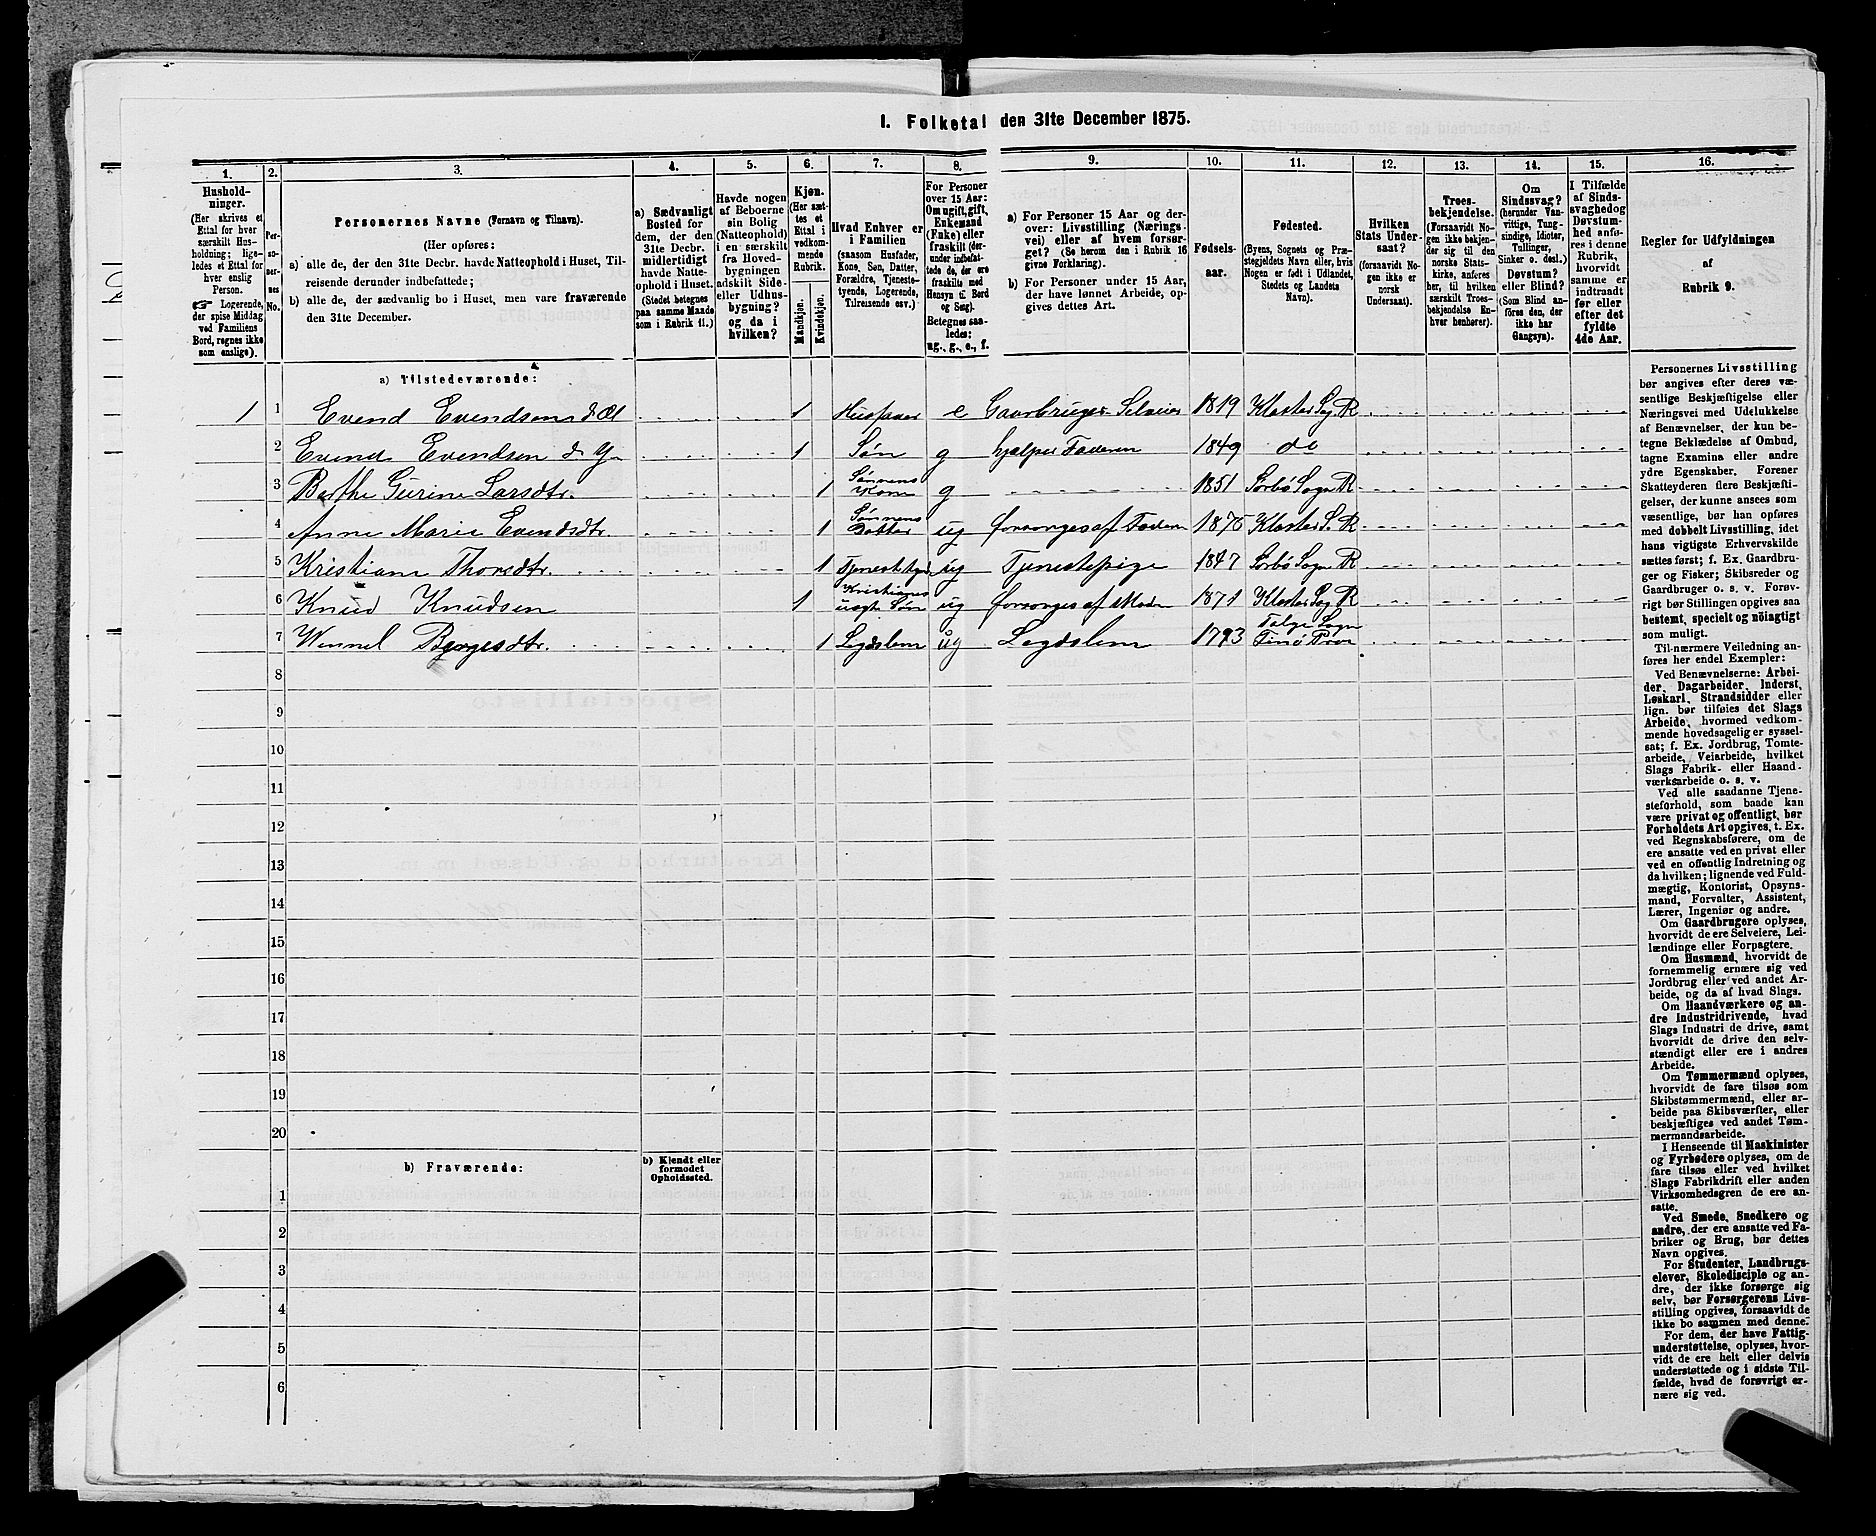 I. Folketal den 31te December 1875.
1.
2.
3.
4.
5.
6.
7.
8.
9.
10.
11.
12.
13.
14.
15.
16.
Hushold-
ninger.
(Her skrives et
Ettal for hver
særskilt Hus-
holdning; lige-
ledes et Ettal for
hver enslig
Person.
☞ Logerende,
der spise Middag
ved Familiens
Bord, regnes ikke
som enslige).
Per-
so-
ner-
nes
No.
Personernes Navne (Fornavn og Tilnavn).
(Her opføres:
a) alle de, der den 31te Decbr. havde Natteophold i Huset, Til-
reisende derunder indbefattede;
b) alle de, der sædvanlig bo i Huset, men vare fraværende
den 31te December.
a) Sædvanligt
Bosted for
dem, der den
31te Decbr.
midlertidigt
havde Natte-
ophold i Huset.
(Stedet betegnes
paa samme Maade
som i Rubrik 11.)
Havde nogen
af Beboerne
sin Bolig
(Natteophold)
i en særskilt
fra Hoved-
bygningen
adskilt Side-
eller Udhus-
bygning?
og da i
hvilken?
Kjøn.
(Her sæt-
tes et
Ettal i
vedkom-
mende
Rubrik.
Mandkjøn.
Kvindekjøn.
Hvad Enhver er
i Familien
(saasom Husfader,
Kone, Søn, Datter,
Forældre, Tjeneste-
tyende, Logerende,
Tilreisende osv.)
For Personer
over 15 Aar:
Om ugift, gift,
Enkemand
(Enke) eller
fraskilt (der-
under indbefat-
tede de, der ere
fraskilte med
Hensyn til Bord
og Seng).
Betegnes saa-
ledes:
ug., g., e., f.
a) For Personer 15 Aar og der-
over: Livsstilling (Nærings-
vei) eller af hvem forsør-
get? (Se herom den i Rubrik 16
givne Forklaring).
b) For Personer under 15 Aar,
der have lønnet Arbeide, op-
gives dettes Art.
Fødsels-
aar.
Fødested.
(Byens, Sognets og Præ-
stegjeldets Navn eller, hvis
Nogen er født i Udlandet,
Stedets og Landets
Navn).
Hvilken
Stats Under-
saat?
(forsaavidt No-
gen ikke er
norsk
Undersaat).
Troes-
bekjendelse.
(Forsaavidt No-
gen ikke bekjen-
der sig til den
norske Stats-
kirke, anføres
her, til hvilken
særskilt Troes-
bekjendelse En-
hver henhører).
Om
Sindssvag?
(herunder Van-
vittige, Tung-
sindige, Idioter,
Tullinger,
Sinker o. desl.)
Døvstum?
eller Blind?
(Som Blind an-
føres den, der
ikke har
Gangsyn).
I Tilfælde
af Sinds-
svaghed og
Døvstum-
hed anfø-
res i denne
Rubrik,
hvorvidt
samme er
indtraadt
før eller
efter det
fyldte
4de Aar.
Regler for Udfyldningen
af
Rubrik 9.
a) Tilstedeværende:
1 1 Evend Evendsen d. Æl 1 Husfader e Gaardbruger Selveier 1819 Kloster Sog. R
2 Evend Evendsen d. y. 1 Søn g hjælper Faderen 1849 do
3 Berthe Gurine Larsdtr. 1 Sønnens Kone g 1851 Sørbø Sogn R
4 Anne Marie Evendsdtr. 1 Sønnens Datter ug forsørges af Faderen 1875 Kloster S. R
5 Kristiane Thorsdtr. 1 Tjenestetyd ug Tjenestepige 1847 Sørbø Sogn R
6 Knud Knudsen 1 Kristianes uægt Søn ug forsørges af Moder 1871 Kloster Sog R
7 1 Legdslem ug Legdslem 1793
8
9
10
11
12
13
14
15
16
17
18
19
20
b) Fraværende:
b) Kjendt eller
formodet
Opholdssted.
1
2
3
4
5
6
Personernes Livsstilling
bør angives efter deres væ-
sentlige Beskjæftigelse eller
Næringsvei med Udelukkelse
af Benævnelser, der kun be-
tegne Beklædelse af Ombud,
tagne Examina eller andre
ydre Egenskaber. Forener
Skatteyderen flere Beskjæfti-
gelser, der kunne ansees som
væsentlige, bør han opføres
med dobbelt Livsstilling, idet
hans vigtigste Erhvervskilde
sættes først; f. Ex. Gaardbru-
ger og Fisker; Skibsreder og
Gaardbruger o. s. v. Forøv-
rigt bør Stillingen opgives saa
bestemt, specielt og nöiagtigt
som muligt.
Til nærmere Veiledning an-
føres her endel Exempler:
Ved Benævnelserne: Arbei-
der, Dagarbeider, Inderst,
Løskarl, Strandsidder eller
lign. bør tilføies det Slags
Arbeide, hvormed vedkom-
mende hovedsagelig er syssel-
sat; f. Ex. Jordbrug, Tomte-
arbeide, Veiarbeide, hvilket
Slags Fabrik- eller Haand-
værksarbeide o. s. v.
Ved alle saadanne Tjene-
steforhold, som baade kan
være privat og offentligt, bør
Forholdets Art opgives, t. Ex.
ved Regnskabsførere, om de
ere ansatte ved en privat eller
ved en offentlig Indretning og
da hvilken; lignende ved Fuld-
mægtig, Kontorist, Opsyns-
mand, Forvalter, Assistent,
Lærer, Ingeniør og andre.
Om Gaardbrugere oplyses,
hvorvidt de ere Selveiere, Lei-
lændinge eller Forpagtere.
Om Husmænd, hvorvidt de
fornemmelig ernære sig ved
Jordbrug eller ved andet Ar-
beide, og da af hvad Slags.
Om Haandværkere og an-
dre Industridrivende, hvad
Slags Industri de drive, samt
hvorvidt de drive den selv-
stændigt eller ere i andres
Arbeide.
Om Tømmermænd oplyses,
hvorvidt de fare tilsøs som
Skibstømmermænd, eller ar-
beide paa Skibsværfter, eller
beskjæftiges ved andet Tøm-
mermandsarbeide.
I Henseende til Maskinister
og Fyrbødere oplyses, om de
fare tilsøs eller ved hvilket
Slags Fabrikdrift eller anden
Virksomhedsgren de ere an-
satte.
Ved Smede, Snedkere og
andre, der ere ansatte ved Fa-
briker og Brug, bør dettes
Navn opgives.
For Studenter, Landbrugs-
elever, Skoledisciple og an-
dre, der ikke forsørge sig
selv, bør Forsørgerens Livs-
stilling opgives, forsaavidt de
ikke bo sammen med denne.
For dem, der have Fattig-
understøttelse, oplyses, hvor-
vidt de ere helt eller delvis
understøttede og i sidste Til-
fælde, hvad de forøvrigt er-
nære sig ved.